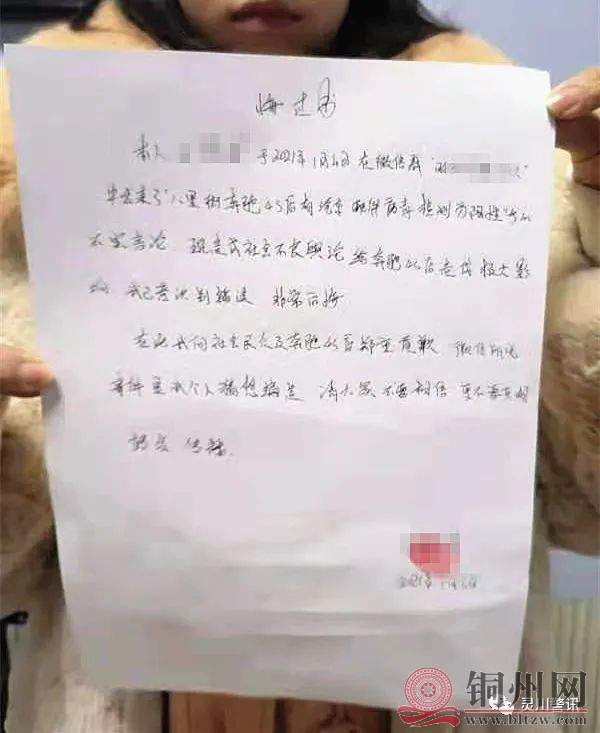 悔过书
本人 于2021年1月4日在微信群"
中发表了"八里街奔驰4S店有汽车 配件病毒检测为阳性"
不实言论 现造成社会不良舆论 给奔驰4S店造成极大影
响 我已意识到错误 非常后悔
在此我向社会民众及奔驰4S店郑重道歉 微信所说
事件是我个人猜想编造 请大家不要相信 更不要
传播.
2021年1月
铜州网
www.bltzw.com
灵川